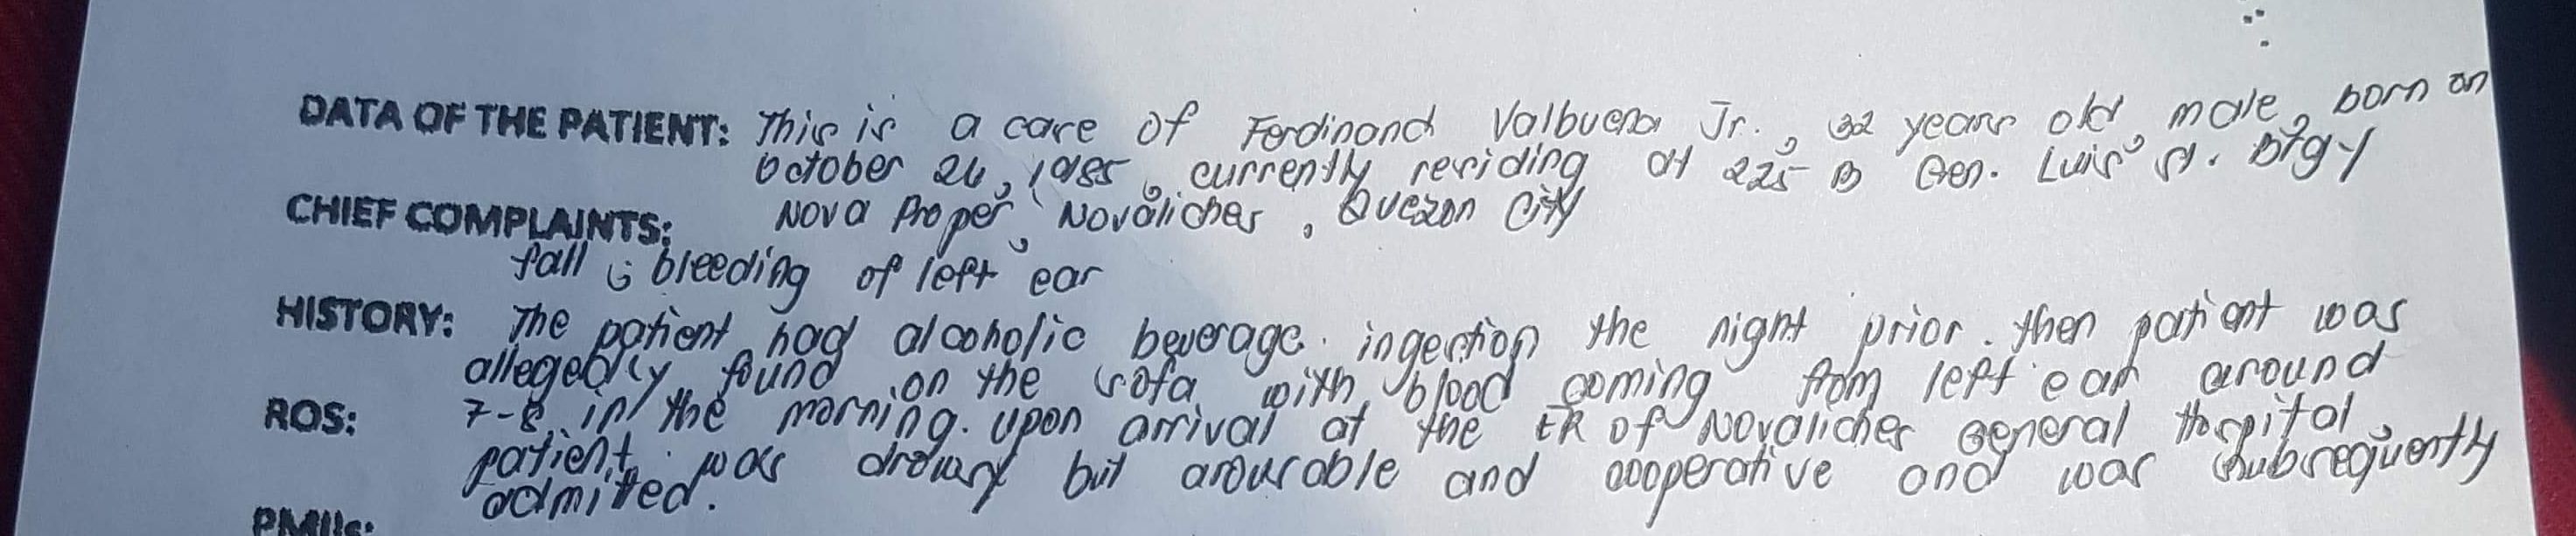 DATA OF THE PATIENT: This is a case of Ferdinand Valbuena Jr., 32 years old, male, born on
October 26, 1985, currently residing at 225 B Gen. Luis St. Brgy
CHIEF COMPLAINTS: Nova Proper, Novaliches, Quezon City
fall ; bleeding of left ear
HISTORY: The patient had alcoholic beverage ingestion the night prior. then patient was
allegedly found on the sofa with blood coming from left ear around
ROS: 7-8 in the morning. upon arrival at the ER of Novaliches General Hospital,
patient was drowsy but arousable and cooperative and was subsequently
admited.
PMHs: